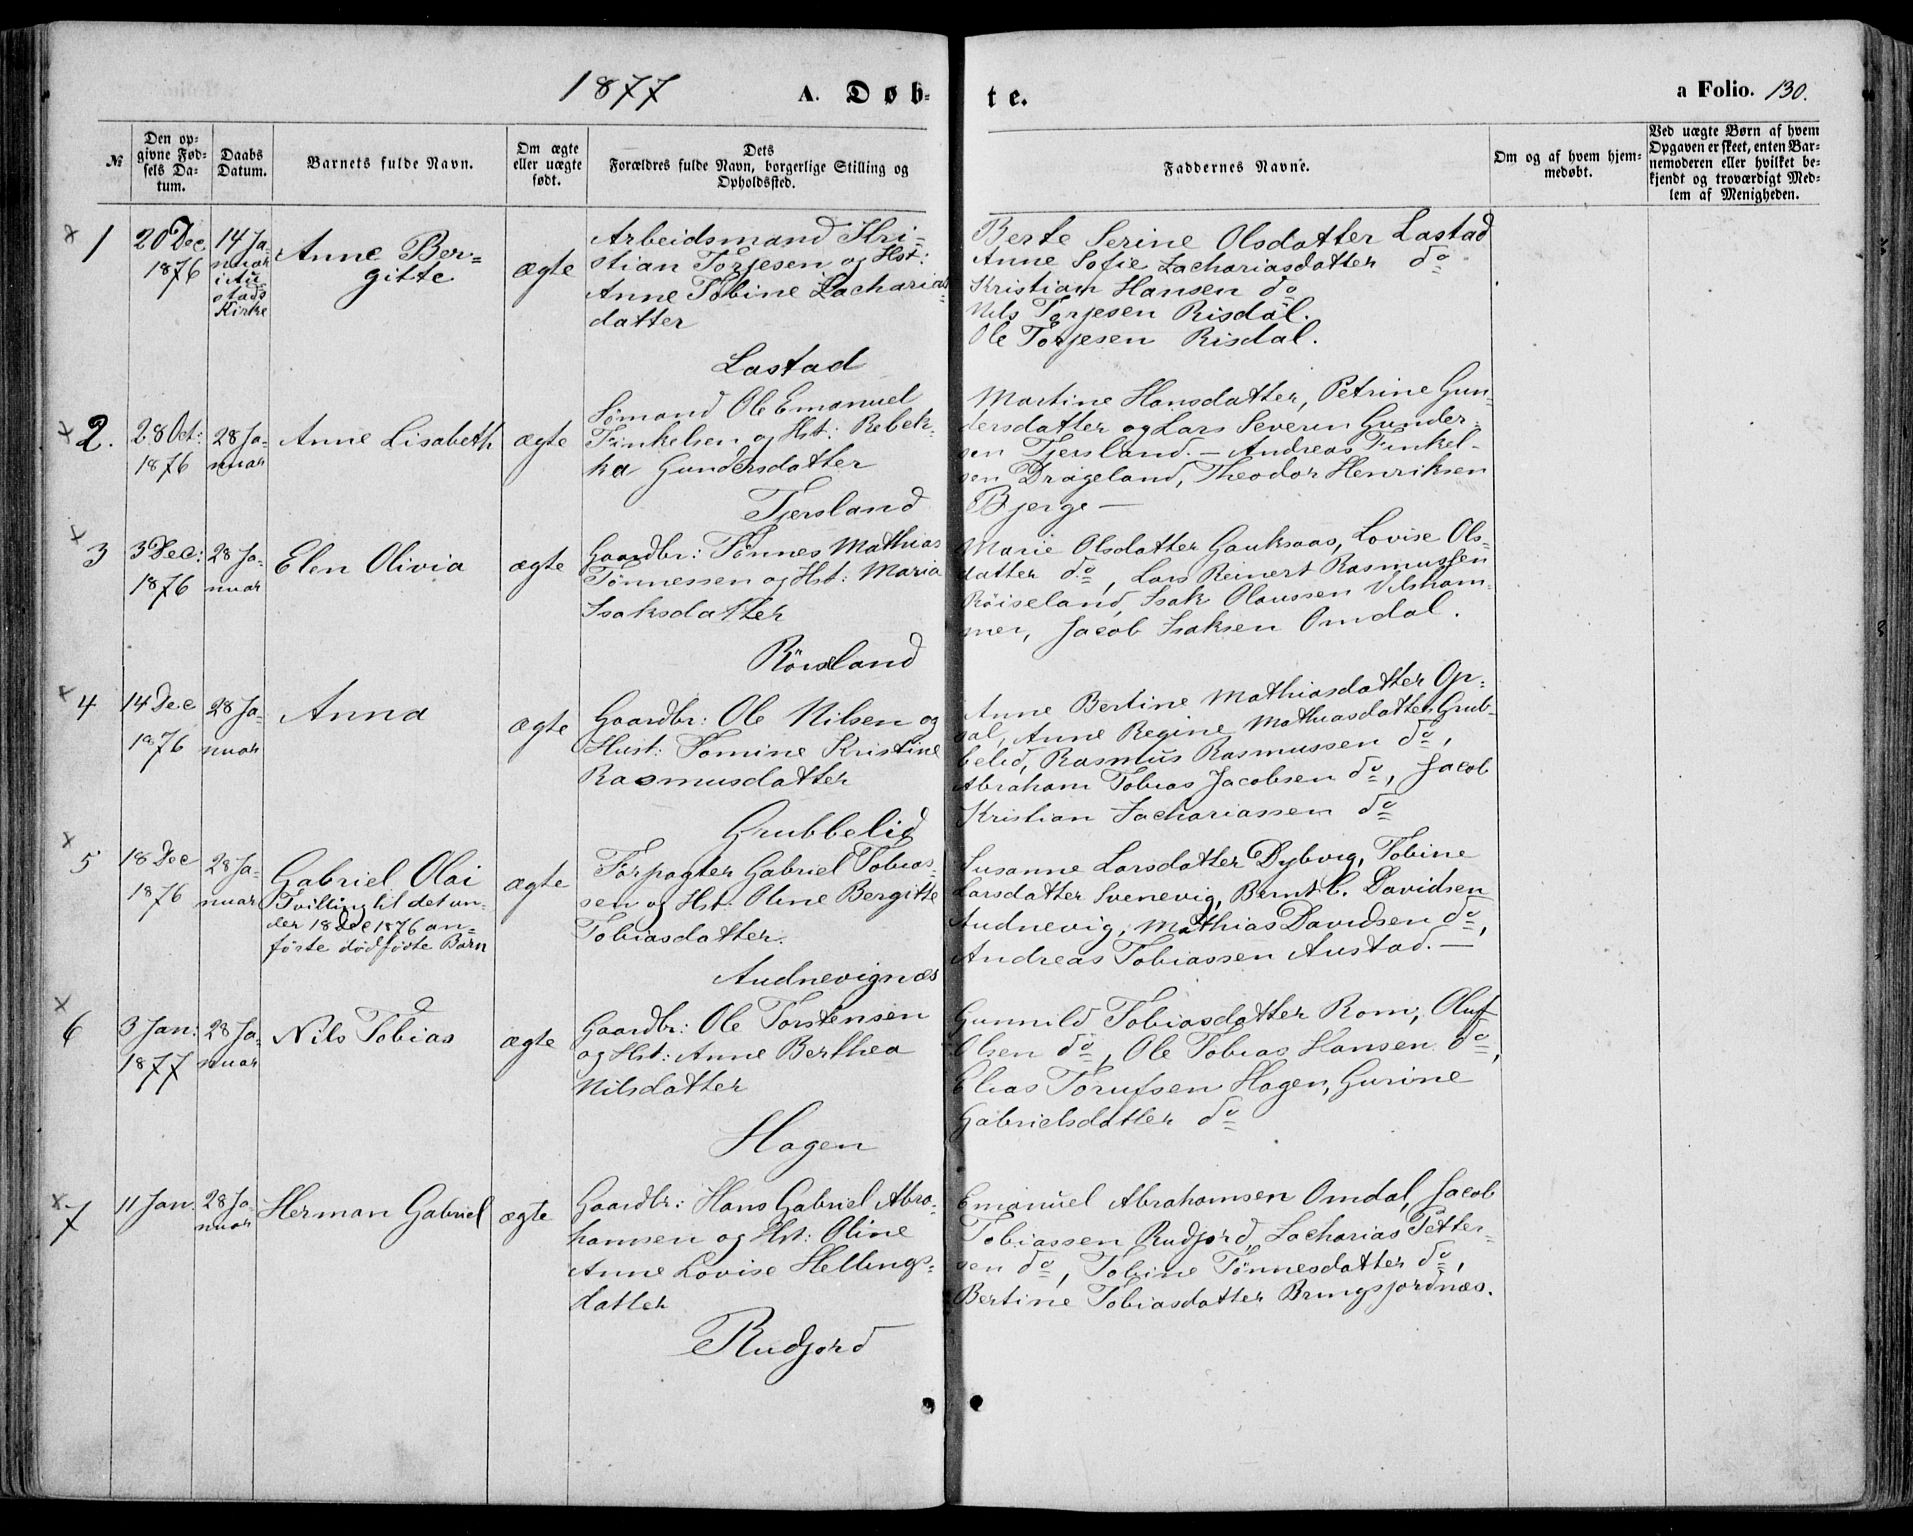 1877
A. Døb-
te.
a Folio. 130.
№
Den op-
givne Fød-
sels Da-
tum.
Daabs
Datum.
Barnets fulde Navn.
Om ægte
eller uægte
født.
Dets
Forældres fulde Navn, borgerlige Stilling og
Opholdssted.
Faddernes Navne.
Om og af hvem hjem-
medøbt.
Ved uægte Børn af hvem
Opgaven er skeet, enten Bar-
nemoderen eller hvilket be-
kjendt og troværdigt Med-
lem af Menigheden.
1
20 Dec
1876
14 Ja-
nuar
i Au
stads
Kirke
Anne Ber=
gitte
ægte
Arbeidsmand Kri=
stian Torjesen og Hst:
Anne Tobine Zacharias=
datter
Lastad
Berte Serine Olsdatter Lastad
Anne Sofie Zachariasdatter do
Kristian Hansen do
Nils Torjesen Risdal.
Ole Torjesen Risdal.
2.
28 Oct:
1876
28 Ja-
nuar
Anne Lisabeth
ægte
Sømand Ole Emanuel
Finkelsen og Hst: Rebek-
ka Gundersdatter
Tjersland
Martine Hansdatter, Petrine Gun-
dersdatter og Lars Severin Gunder-
sen Tjersland. – Andreas Finkel-
sen Drageland, Theodor Henriksen
Bjerge –
3
3 Dec:
1876
28 Ja-
nuar
Elen Olivia
ægte
Gaardbr: Tønnes Mathias
Tønnessen og Hst: Maria
Isaksdatter
Röisland
Marie Olsdatter Gauksaas, Lovise Ols-
datter do, Lars Reinert Rasmussen
Röiseland, Isak Olaussen Velsham-
mer, Jacob Isaksen Omdal.
4
14 Dec
1876
28 Ja-
nuar
Anna
ægte
Gaardbr: Ole Nilsen og
Hust: Tomine Kristine
Rasmusdatter
Grubbelid
Anne Bertine Mathiasdatter Op-
sal, Anne Regine Mathiasdatter Grub-
belid, Rasmus Rasmussen do,
Abraham Tobias Jacobsen do, Jacob
Kristian Zachariassen do
5
18 Dec
1876
28 Ja-
nuar
Gabriel Olai
Tvilling til det un-
der 18 Dec 1876 an-
förte dödfødte Barn
ægte
Forpagter Gabriel Tobias-
sen og Hst: Oline Bergitte
Tobiasdatter.
Audnevignæs
Susanne Larsdatter Dybvig, Tobine
Larsdatter Svenevig, Bernt C. Davidsen
Audnevig, Mathias Davidsen do,
Andreas Tobiassen Austad. –
6
3 Jan:
1877
28 Ja-
nuar
Nils Tobias
ægte
Gaardbr: Ole Torstensen
og Hst: Anne Berthea
Nilsdatter
Hagen
Gunnild Tobiasdatter Rom, Oluf
Olsen do, Ole Tobias Hansen do,
Elias Torufsen Hagen, Gurine
Gabrielsdatter do
7
11 Jan.
28 Ja
nuar
Herman Gabriel
ægte
Gaardbr: Hans Gabriel Abra-
hamsen og Hst: Oline
Anne Lovise Hellings-
datter
Rudjord
Emanuel Abrahamsen Omdal, Jacob
Tobiassen Rudjord, Zacharias Petter-
sen do, Tobine Tönnesdatter do,
Bertine Tobiasdatter Bringsjordnæs.